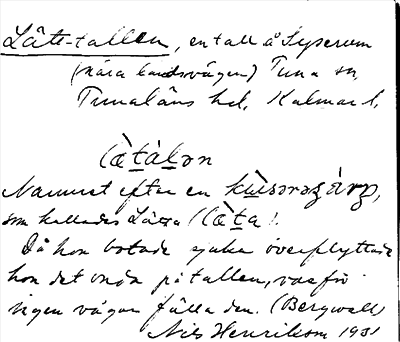 Lätt-tallen, en tall å Syserum
(nära landsvägen) Tuna sn,
Tunaläns hd, Kalmar l.
Namnet efter en
som kallades Lätta
Då hon botade sjuka överflyttade
hon det onda på tallen, varför
ingen vågar fälla den. (Bergwall)
Nils Henrikson 1931